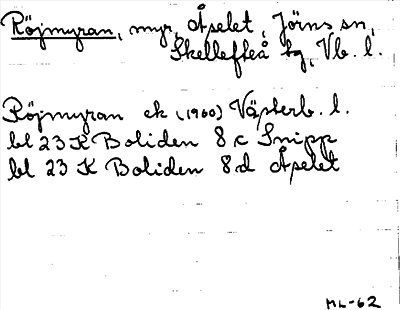 Röjmyran, myr, Åselet, Jörns sn,
Skellefteå tg, Vb. l.
Röjmyran ek (1960) Västerb. l.
bl 23 K Boliden 8 c Snipp
bl 23 K Boliden 8 d Åselet
ML-62